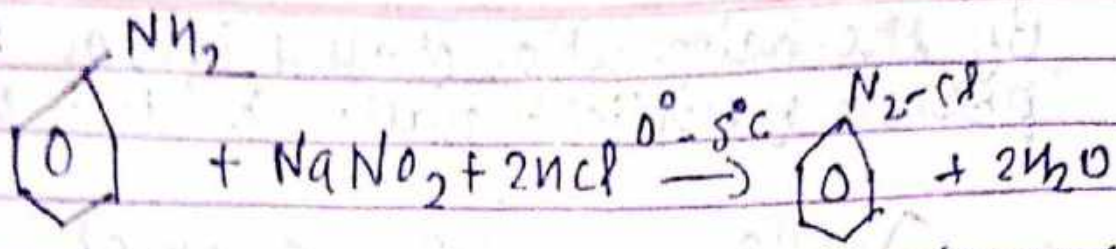 NH₂
+ NaNO₂ + 2HCl 0°-5°C → N₂-Cl + 2H₂O